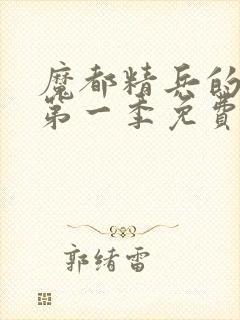 魔都精兵的
第一季免費
郭绪雷